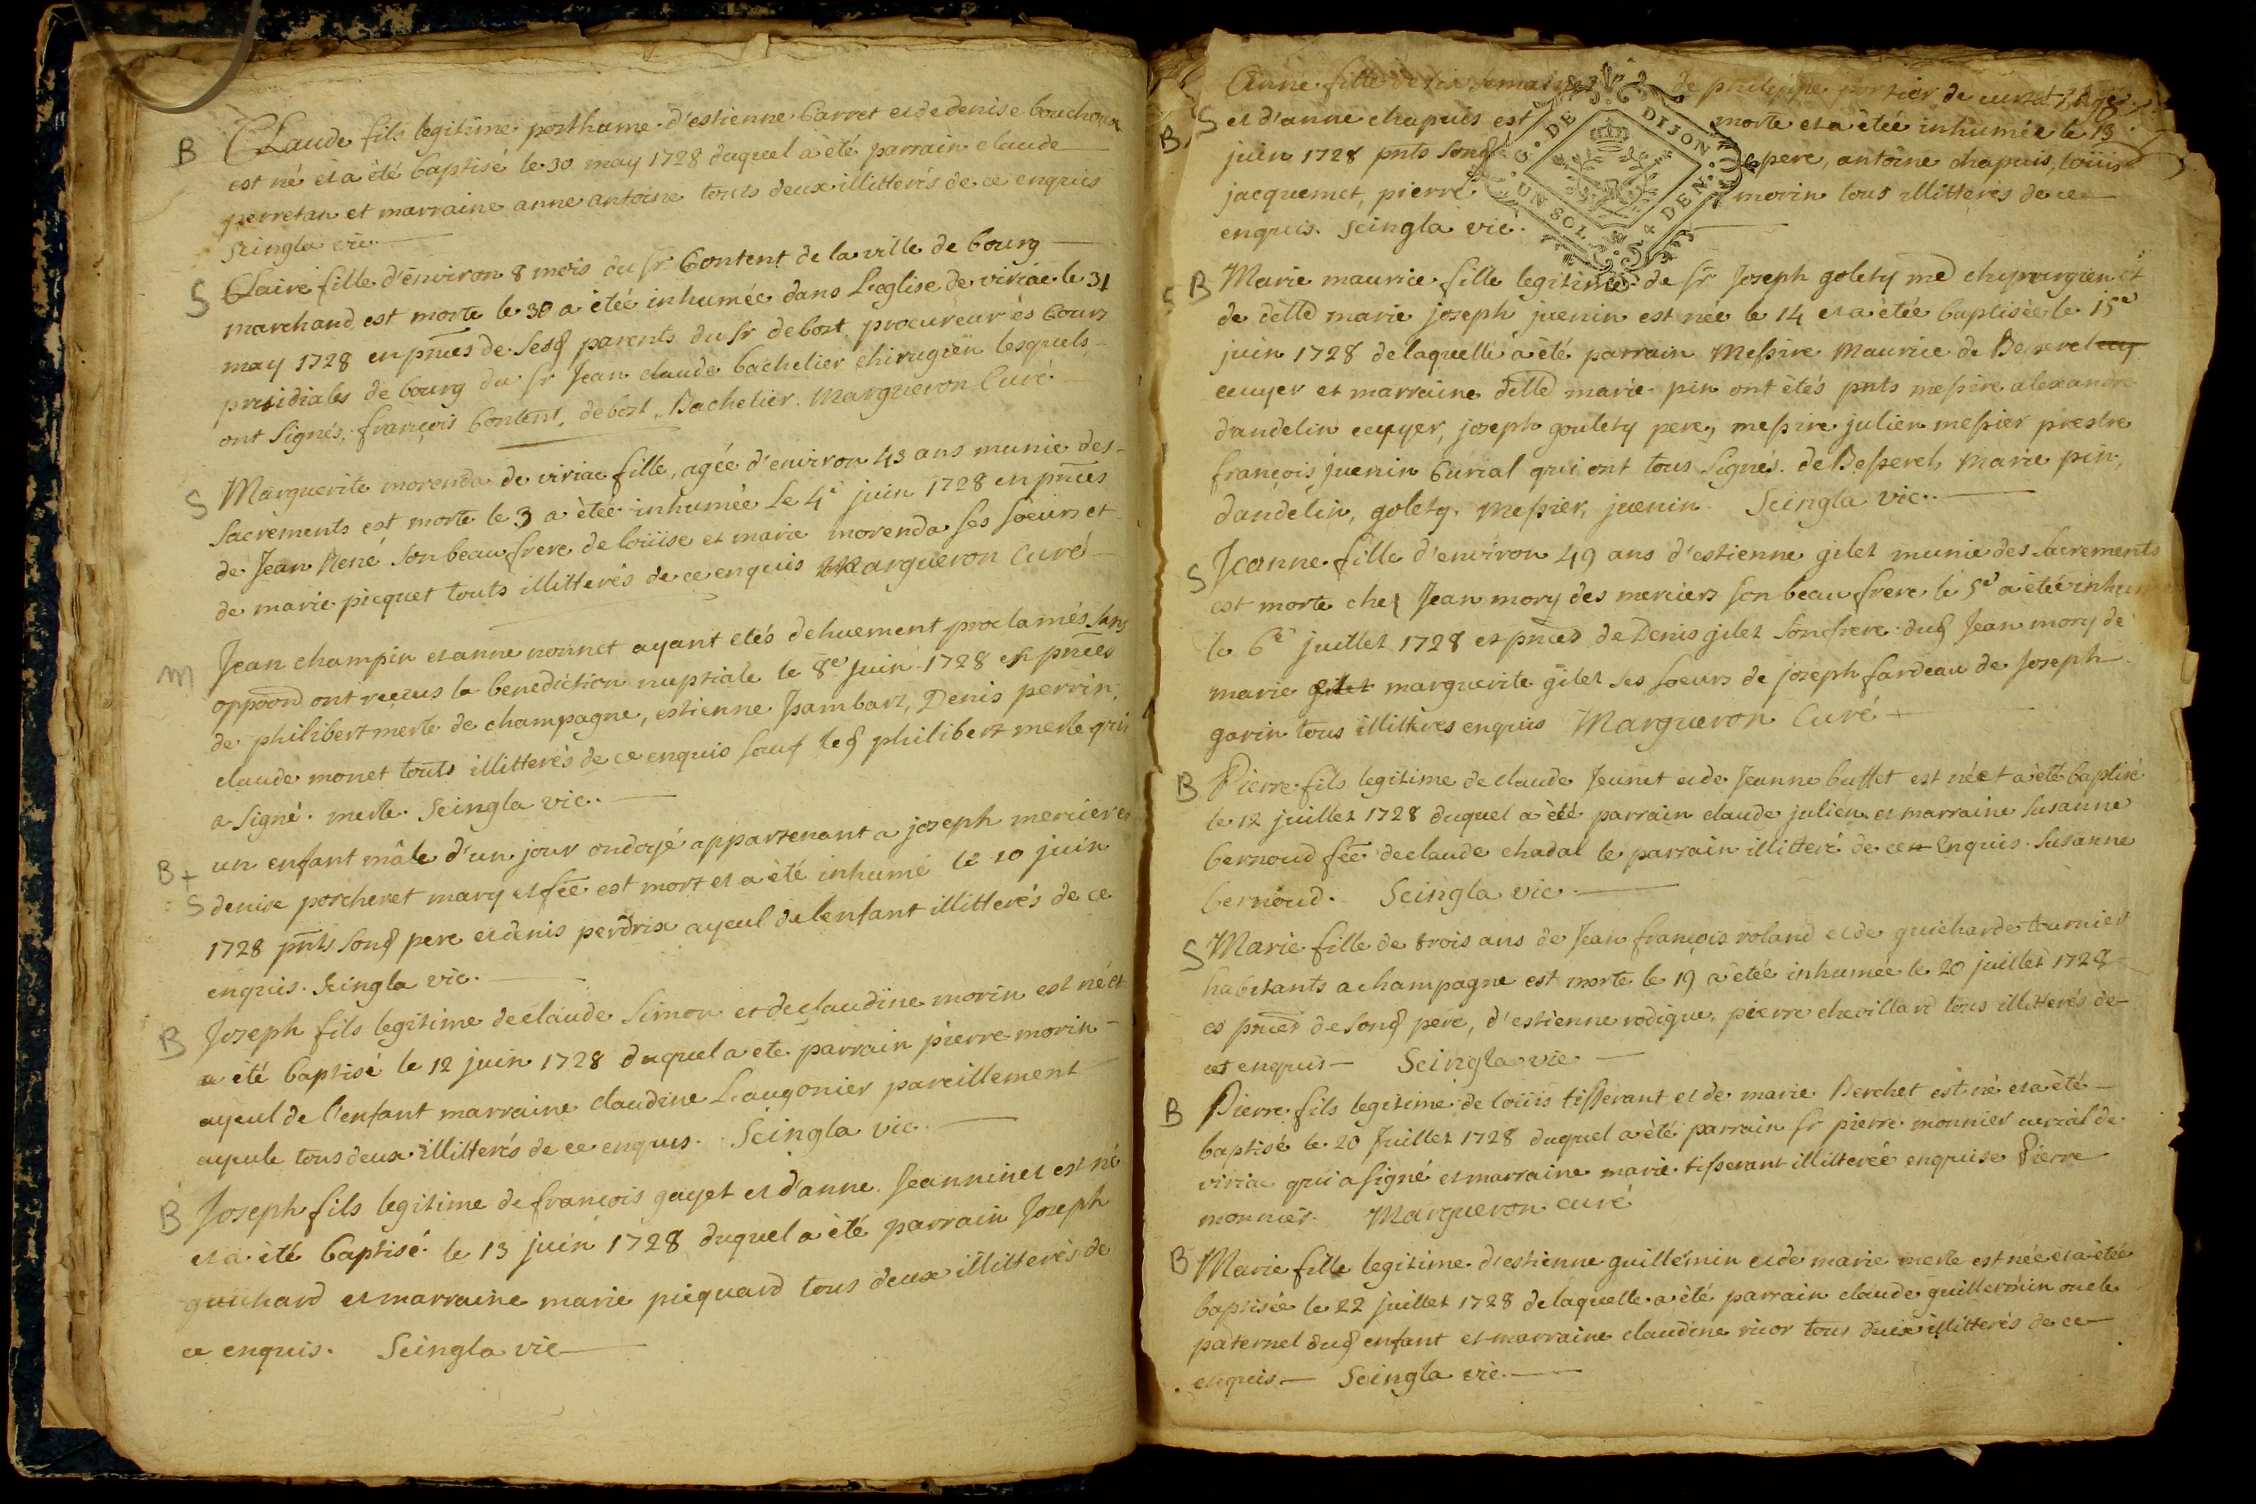 B Claude fils legitime posthume d'estienne Carret et de denise bouchoux
est né et a été baptisé le 30 may 1728 duquel a été parrain claude
perretan et marraine anne antoine touts deux illitterés de ce enquis
Scingla vic.
S Claire fille d'environ 8 mois du sr Content de la ville de bourg
marchand est morte le 30 a étée inhumée dans L'eglise de viriac le 31
may 1728 en pnces de sesd parents du sr debost procureur és Cours
presidiales de bourg du sr Jean claude bachelier chirugien lesquels
ont signés, françois Content, debost, Bachelier. Margueron Curé
S Marguerite morenda de viriac fille, agée d'environ 43 ans munie des
sacrements est morte le 3 a étée inhumée Le 4e juin 1728 en pnces
de Jean René son beau frere de loüise et marie morenda ses soeurs et
de marie picquet touts illitterés de ce enquis Margueron Curé
m Jean champin et anne nonnet ayant etés dehuement proclamés sans
oppoond ont reçus la benediction nuptiale le 8e juin 1728 en pnces
de philibert merle de champagne, estienne Jsambart, Denis perrin,
claude monet touts illitterés de ce enquis sauf led philibert merle qui
a signé. merle. Scingla vic.
B + un enfant mâle d'un jour ondoyé appartenant a joseph mercier et
S denise porcheret mary et fée est mort et a été inhumé le 10 juin
1728 pnts sond pere et denis perdrix ayeul de lenfant illitterés de ce
enquis. Scingla vic.
B Joseph fils legitime de claude Simon et de claudine morin est né et
a été baptisé le 12 juin 1728 duquel a été parrain pierre morin
ayeul de l'enfant marraine claudine Laugonier pareillement
ayeule tous deux illitterés de ce enquis. Scingla vic.
B Joseph fils legitime de françois gayet et d'anne Jeanninet est né
et a été baptisé le 13 juin 1728 duquel a été parrain Joseph
guichard et marraine marie picquard tous deux illitterés de
ce enquis. Scingla vic
Anne fille de six semaines de philippe portier de curtet
S et d'anne chapuis est morte et a étée inhumée le 13
B juin 1728 pnts sond pere, antoine chapuis, loüis
jacquemet, pierre morin tous illitterés de ce
enquis. Scingla vic.
G. DE DIJON
UN SOL 4 DEN.
S B Marie maurice fille legitime de sr Joseph golety md chyrurgien et
de delle marie joseph juenin est née le 14 et a étée baptisée le 15e
juin 1728 de laquelle a été parrain Messire Maurice de Besserel
ecuyer et marraine delle marie pin ont étés pnts messire alexandre
dandelin ecuyer, joseph goulety pere, messire julien messier prestre
françois juenin Curial qui ont tous signés. de Besserel, marie pin,
dandelin, golety, Messier, juenin. Scingla vic.
S Jeanne fille d'environ 49 ans d'estienne gilet munie des sacrements
est morte chez Jean mory des merciers son beau frere le 5e a étée inhum
le 6e juillet 1728 es pnces de Denis gilet son frere dud Jean mory de
marie gilet marguerite gilet ses soeurs de joseph fardeau de Joseph
gavin tous illitteres enquis Margueron Curé
B Pierre fils legitime de claude Jeunet et de Jeanne buffet est né et a été baptisé
le 12 juillet 1728 duquel a été parrain claude julien et marraine susanne
bernoud fée de claude chadal le parrain illitteré de ce Enquis. susanne
bernoud. Scingla vic
S Marie fille de trois ans de Jean françois roland et de guicharde tournier
habitants a champagne est morte le 19 a étée inhumée le 20 juillet 1728
es pnces de sond pere, d'estienne rodigue, pierre chevillard tous illitterés de
cet enquis Scingla vic
B Pierre fils legitime de loüis tisserant et de marie Berchet est né et a été
baptisé le 20 Juillet 1728 duquel a été parrain sr pierre monnier curial de
viriac qui a signé et marraine marie tisserant illitterée enquise Pierre
monnier. Margueron curé
B Marie fille legitime d'estienne guillermin et de marie merle est née et a étée
baptisée le 22 juillet 1728 de laquelle a été parrain claude guillermin oncle
paternel dud enfant et marraine claudine ricor tous deux illitterés de ce
enquis Scingla vic.